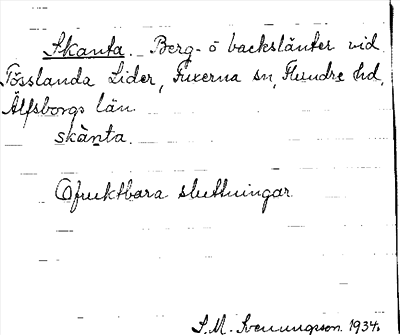 Skanta. Berg- o backslänter vid
Tösslanda Lider, Fuxerna sn, Flundre hd,
Älfsborgs län.
skànta.
Ofruktbara sluttningar
S.M. Svenungsson 1934.